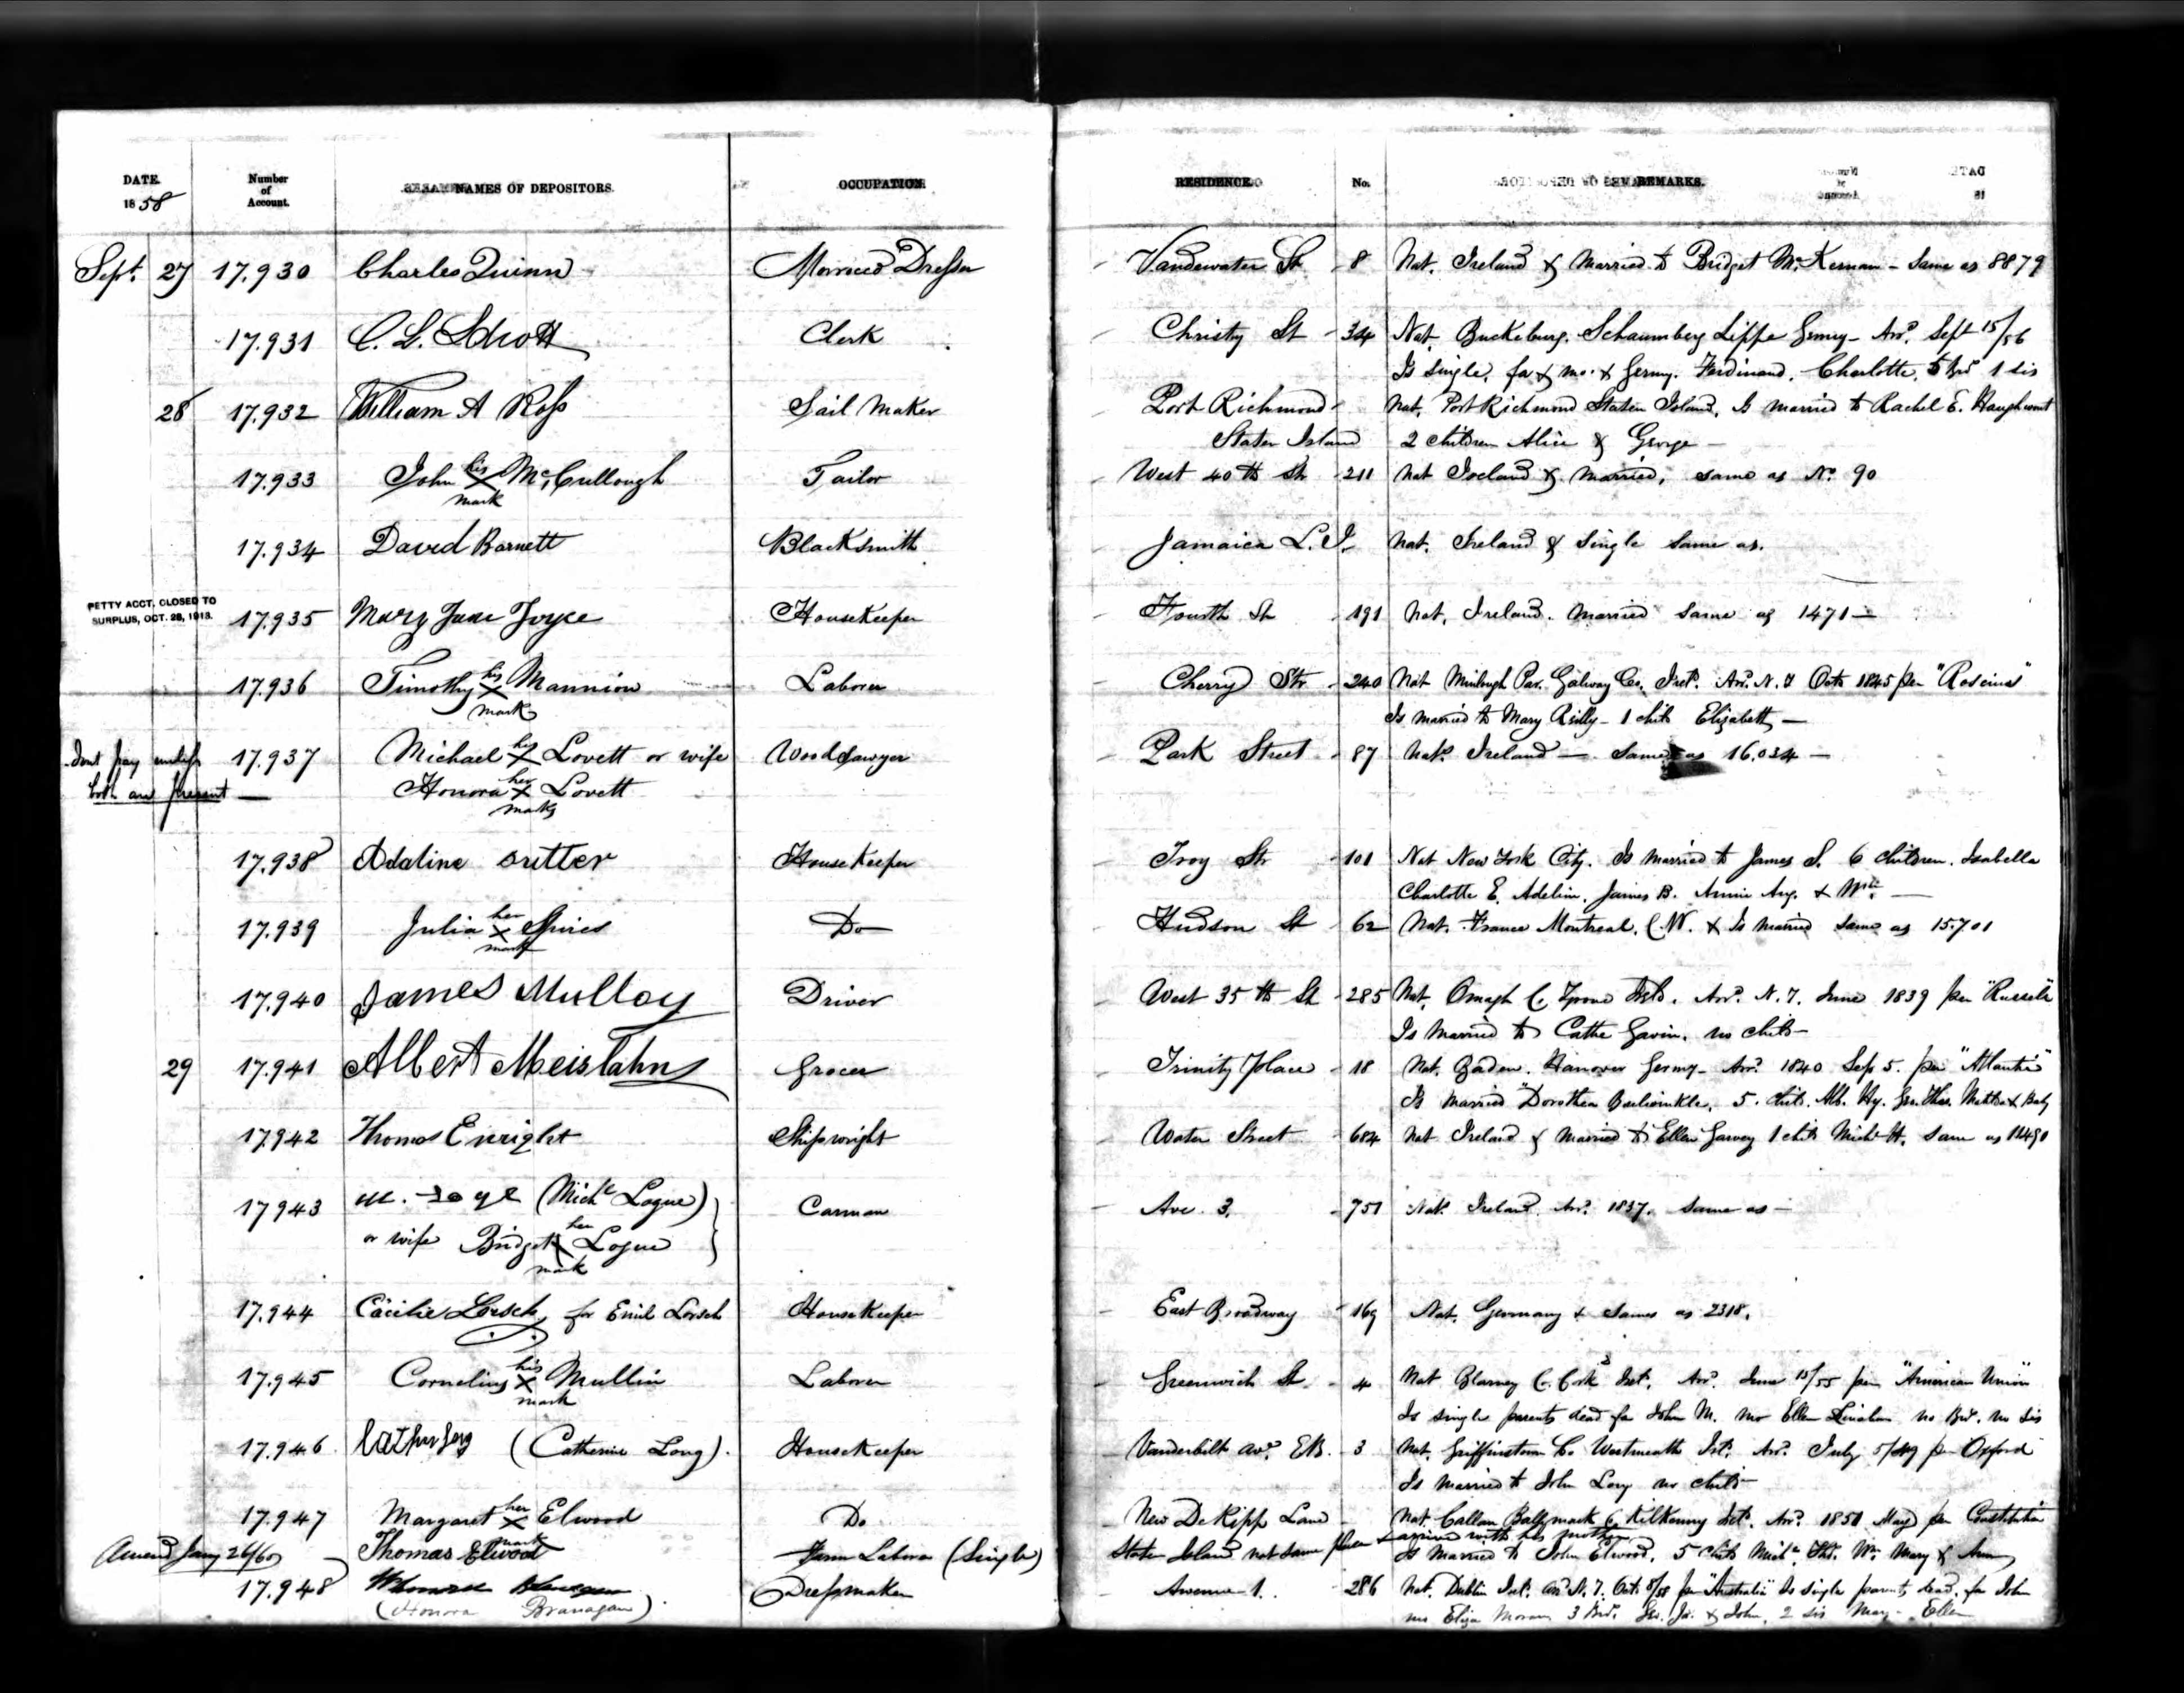 DATE. Number of Account. NAMES OF DEPOSITORS. OCCUPATION. RESIDENCE. No. REMARKS.
1858
Sept. 27 17.930 Charles Quinn Morocco Dresser Vandewater St 8 Nat. Ireland & Married to Bridget McKernan - Same as 8879
17.931 C. L. Schott Clerk Christy St 34 Nat. Buckeburg. Schaumberg Lippe Germy - Arrd. Sept 15/56
Is Single. fa & mo. & Germy. Ferdinand. Charlotte. 5 Brd 1 sis
28 17.932 William A Ross Sail Maker Port Richmond Nat. Port Richmond Staten Island. Is married to Rachel E. Haughwout
Staten Island 2 children Alice & George -
17.933 John his X mark McCullough Tailor West 40th St 211 Nat Ireland & married, same as No. 90
17.934 David Barnett Blacksmith Jamaica L.I. Nat. Ireland & Single Same as.
PETTY ACCT, CLOSED TO
SURPLUS, OCT. 28, 1913.
17.935 Mary Jane Joyce HouseKeeper Fourth St 191 Nat. Ireland. Married Same as 1471 -
17.936 Timothy his X mark Mannion Laborer Cherry Str 240 Nat Par. Galway Co. Ireld. Arrd. N.Y Octr 1845 per "Roscius"
Is married to Mary Reilly - 1 child Elizabeth -
Dont pay unless 17.937 Michael his X Lovett or wife Wood Sawyer Park Street 87 Nat. Ireland - Same as 16.034 -
both are present - Honora her X Lovett
marks
17.938 Adaline sutter HouseKeeper Troy Str 101 Nat New York City. Is Married to James S. 6 children. Isabella
Charlotte E. Adeline. James B. Annie Aug. & Wm. -
17.939 Julia her X mark Spires Do Hudson St 62 Nat. France Montreal. & Is married same as 15.701
17.940 James Mulloy Driver West 35th St 285 Nat. Omagh C. Tyrone Ireld. Arrd. N.Y. June 1839 per "Russell"
Is Married to Cathe Gavin. no childr -
29 17.941 Albert Meislahn Grocer Trinity Place 18 Nat. Hanover Germy - Arrd. 1840 Sep 5. per "Atlantic"
Is married Dorothea 5. childr. Alb. Hy. Geo. & Baby
17.942 Thomas Enright Shipwright Water Street 684 Nat Ireland & Married to Ellen Garvey 1 child Michl H. Same as
17943 M. Loge (Michl Logue) Carman Ave. 3. 751 Nat. Ireland. Arrd. 1837. Same as -
or wife Bridget her X mark Logue
17.944 Cäcilie Lorsch, for Emil Lorsch HouseKeeper East Broadway 169 Nat. Germany & Same as 2318.
17.945 Cornelius his X mark Mullin Laborer Greenwich St 4 Nat Blarney C. Cork Ireld. Arrd. June 15/55 per "American Union"
Is single parents dead fa John M. mo Ellen Linehan no Brd. no sis
17.946 (Catherine Long). HouseKeeper Vanderbilt Av. EB. 3 Nat. Griffinstown Co Westmeath Ireld. Arrd. July 5/49 per Oxford
Is Married to John Long no childr
17.947 Margaret her X mark Elwood Do New De Kipp Land Nat. Callan C. Kilkenny Ireld. Arrd. 1851 May per Constitution
arrived with his mother
Amend Jany 26/60 Thomas Elwood Farm Laborer (Single) Staten Island not same place Is Married to John Elwood. 5 childr Michl. Thos. Wm. Mary & Ann
17.948 Dressmaker Avenue 1. 286 Nat. Dublin Ireld. Arr. N.Y. Oct. per "Australia" Is single parents dead. fa John
(Honora Branagan) mo Eliza Moran 3 Brd. Geo. Js. & John. 2 sis Mary Ellen